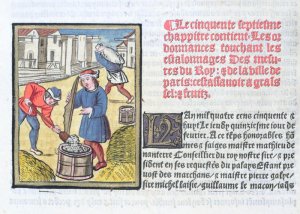 Le cinquante septiesme
chappitre contient Les or
donnances touchant les
estalonnages Des mesu
res du Roy: & de la ville de
paris: cest assauoir a grais
sel: & fruitz.
Lan mil quatre cens cinquante &
huyt Le ieudy quinziesme iour de
feurier. A ce tẽps honorables hõm
mes & saiges maistre mathieu de
nanterre Conseillier du roy nostre sire & presi
dent es requestes du palays Estant preuost
uost des marchans / & maistre pierre galye
sire michel laisie / guillaume le maçon / iaqs